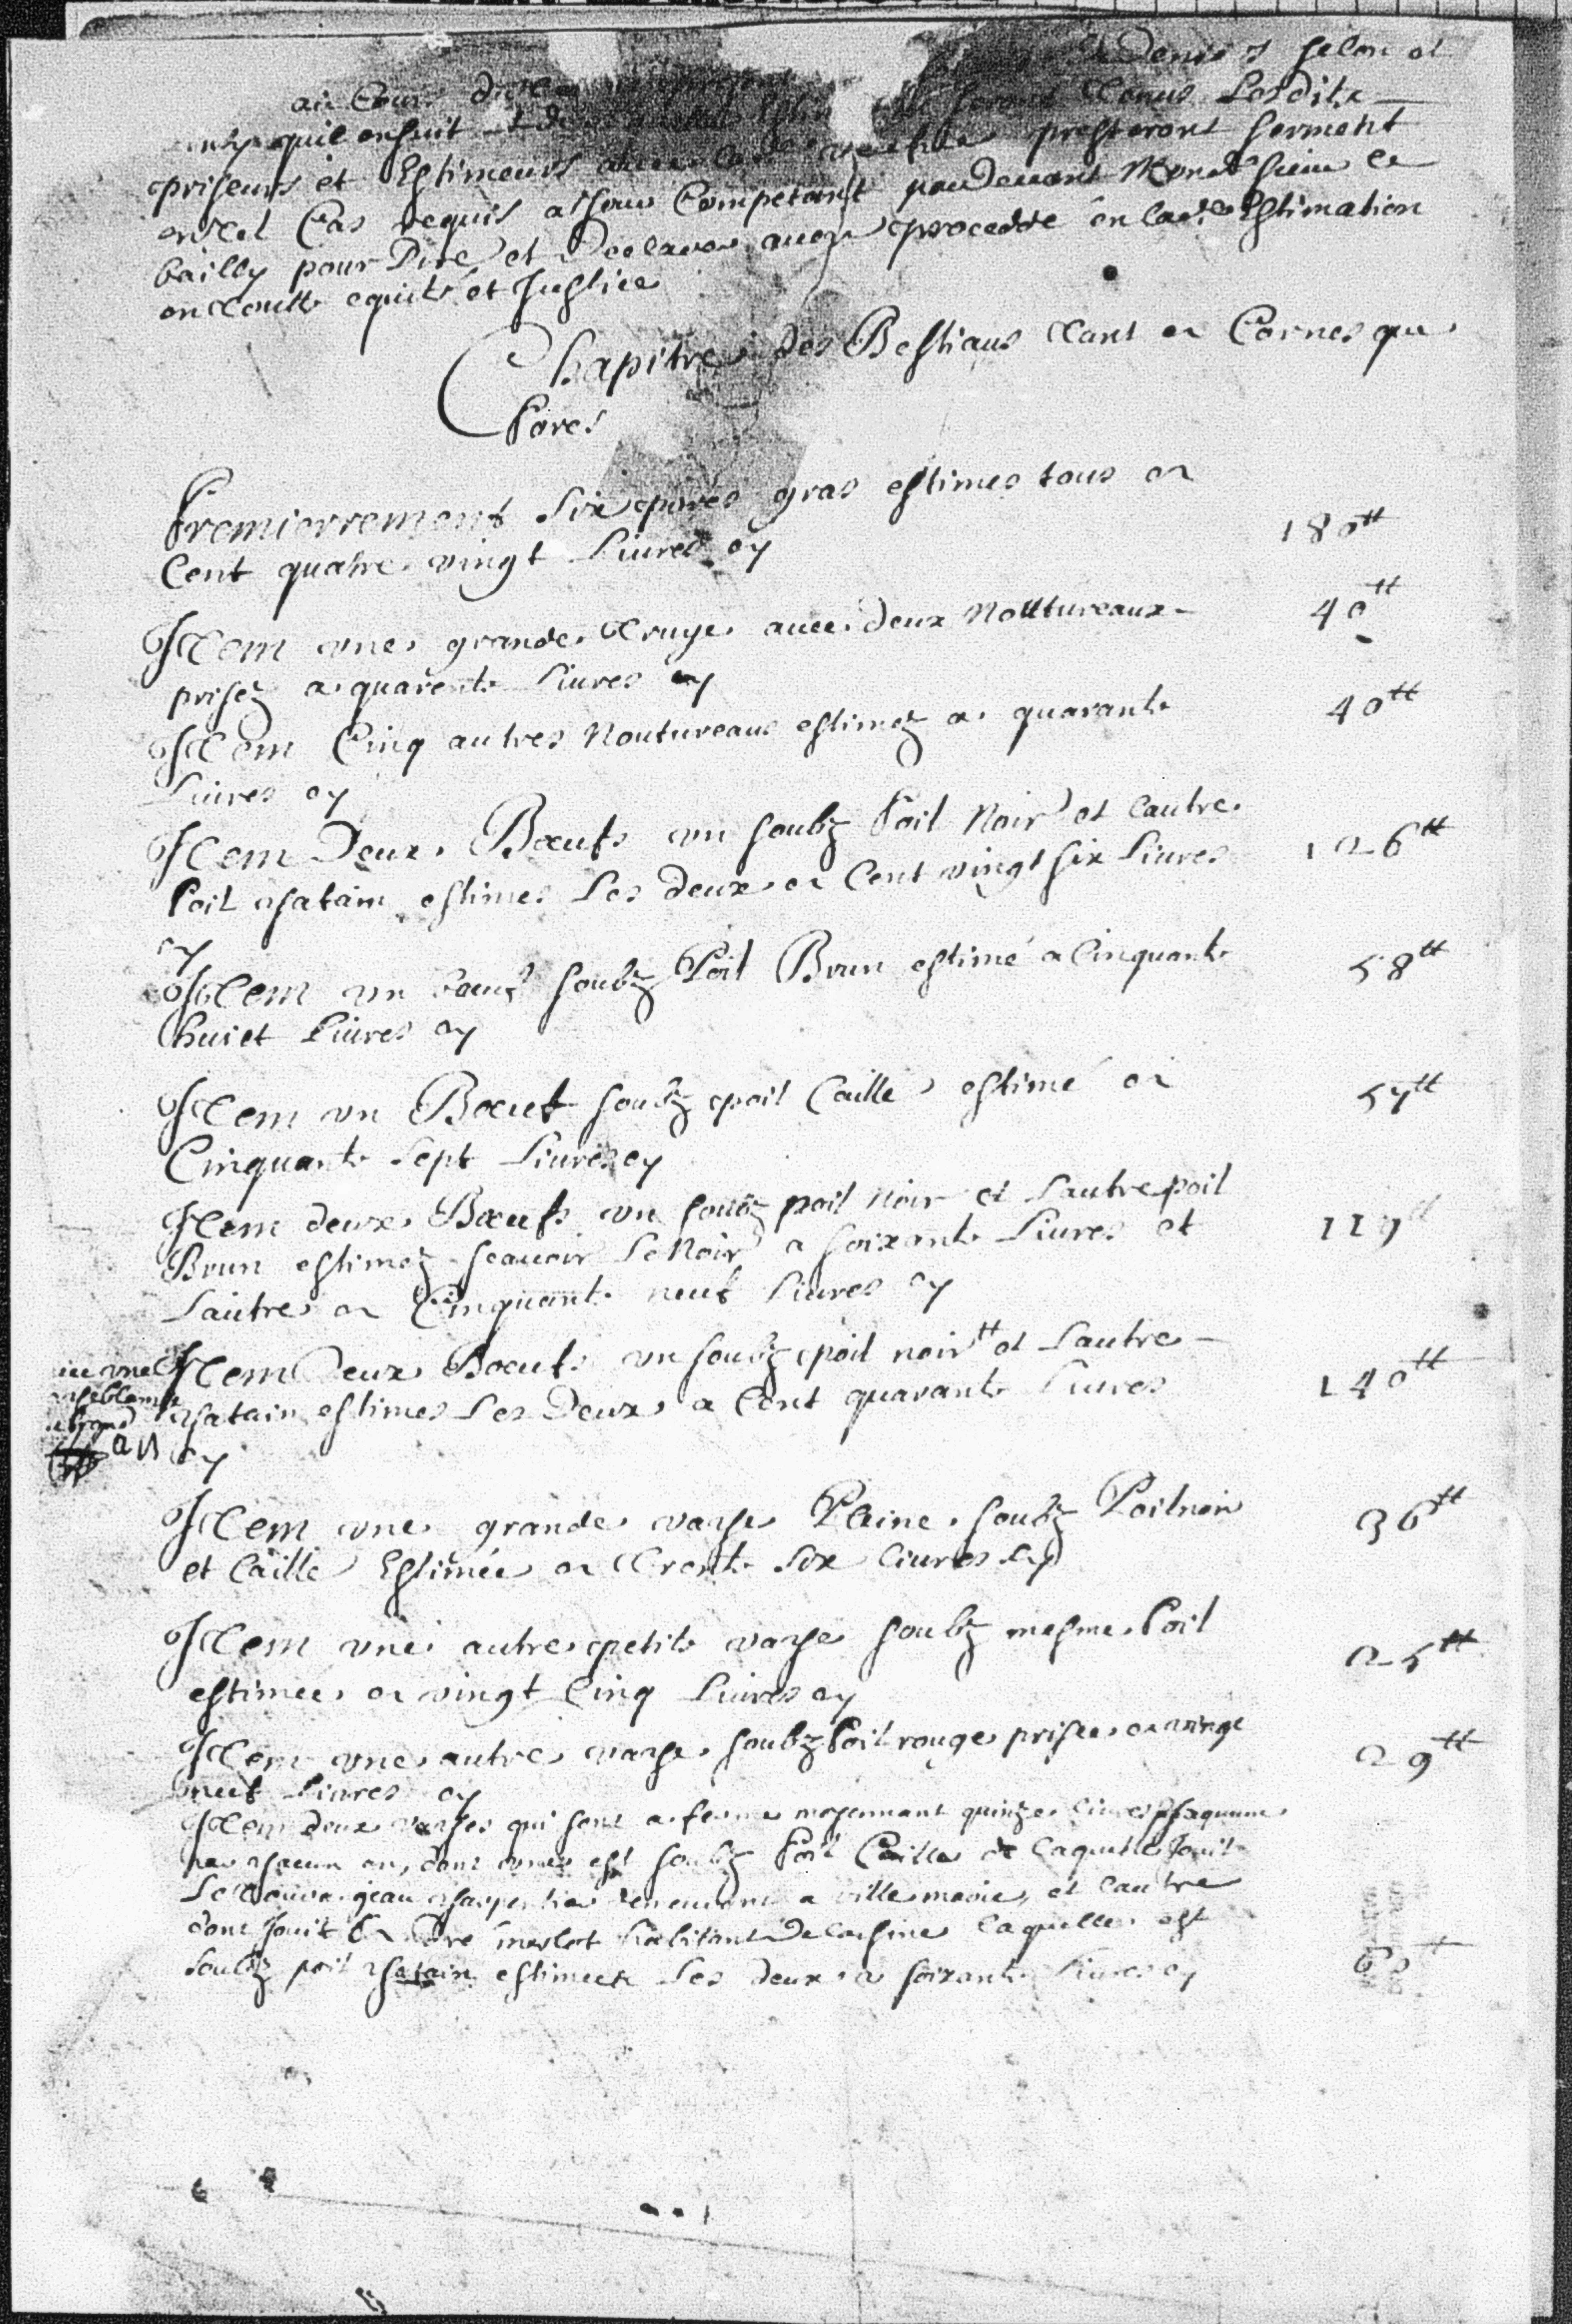 Deniers selon et
au Cours du
ainsy quil ensuit et de seront tenus Lesdits
priseurs et Estimeurs avec presteront serment
en tel Cas requis a Jour Competant pardevant Mondt sieur le
bailly pour Dire et Declarer avoir procedde en lade Estimation
en toutte equité et Justice
Chapitre des Bestiaus tant a Cornes que
Porcs
Premierrement Six porcs gras estimes tous a
Cent quatre vingt Livres cy 180tt
Item une grande truye avec deux Nottureaux
prisez a quarente Livres cy 40tt
Item Cinq autres Noutureaus estimez a quarante 40tt
Livres cy
Item Deux Bœufs un soubz Poil Noir et Lautre
Poil chatain estimes Les deux a Cent vingt six Livres 126tt
cy
Item un bœuf soubz Poil Brun estimé a Cinquante 58tt
huict Livres cy
Item un Bœuf soubz poil Caille estimé a 57tt
Cinquante Sept Livres cy
Item deux Bœufs un soubz poil Noir et Lautre poil
Brun estimez scavoir Le Noir a soixante Livres et 119tt
Lautre a Cinquante neuf Livres cy
Item Deux Bœufs un soubz poil noir tt et Lautre
chatain estimes Les Deux a Cent quarante Livres 140tt
an cy
Item une grande vache Pleine soubz Poil noir 36tt
et Caille Estimée a trente Six Livres cy
Item une autre petite vache soubz mesme Poil
estimee a vingt Cinq Livres cy 25tt
Item une autre vache soubz Poil rouge prisee a vingt 29tt
neuf Livres cy
Item deux vaches qui sont a ferme moyennant quinze Livres chaqune
par chacun an, dont une est soubz Poil Caille de Laquelle Jouit
Jean charpentier demeurant a ville maoie, et Lautre
dont Jouit André merlot habitant De Laquelle est
soubz poil chatain estimeez Les deux a soixante Livres cy 60tt